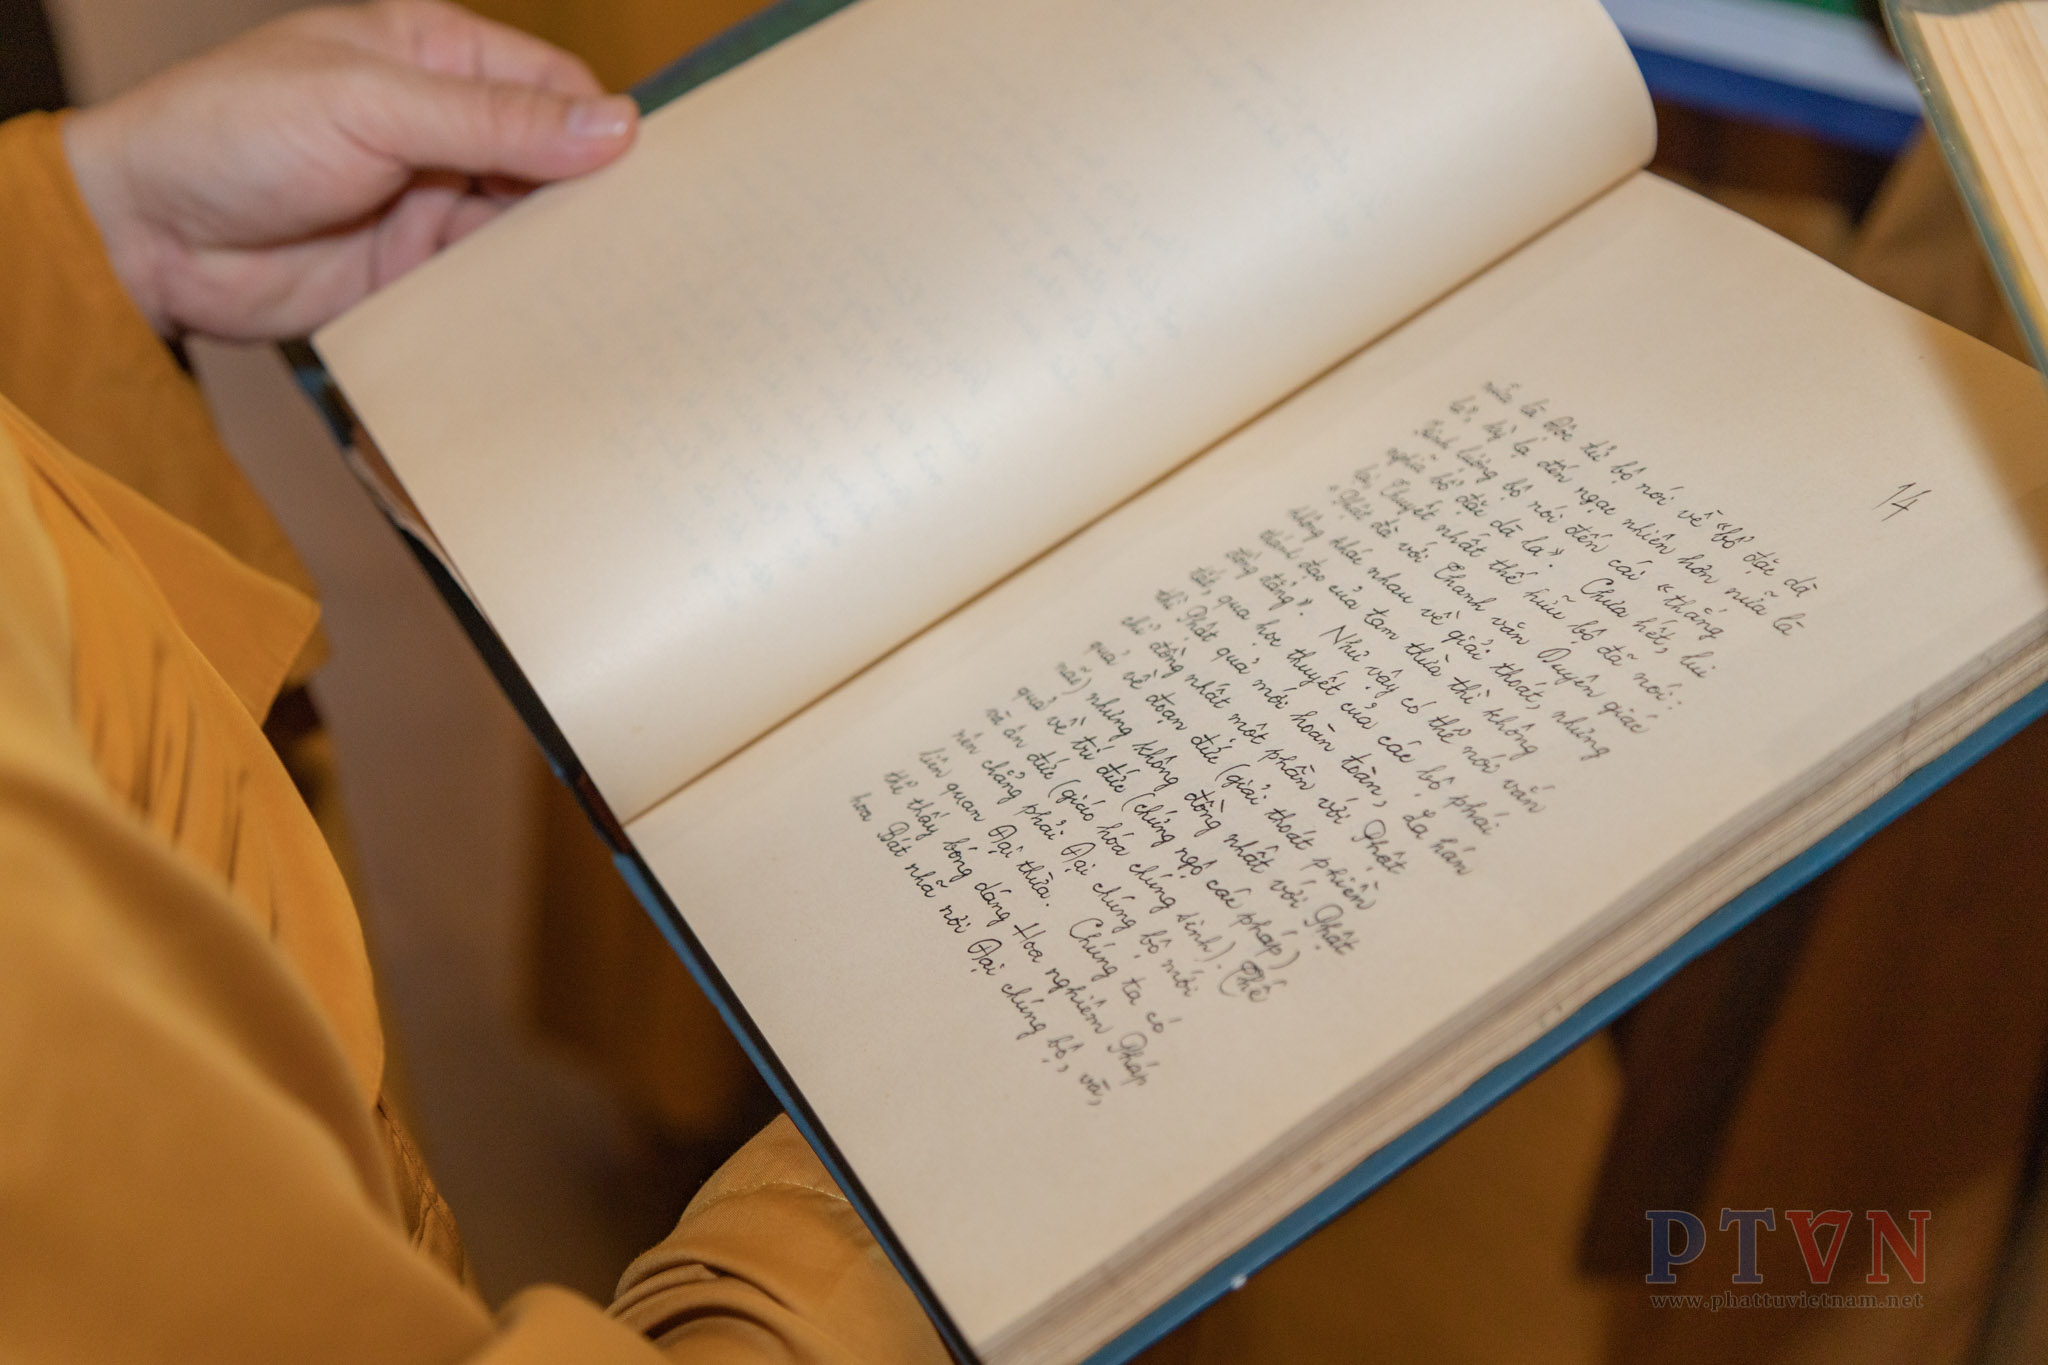 14
nữa là Độc tử bộ nói về "bổ đặc dà
la", kỳ lạ đến ngạc nhiên hơn nữa là
Kinh lượng bộ nói đến cái "thắng
nghĩa bổ đặc dà la". Chưa hết, lui
lại, Thuyết nhất thế hữu bộ đã nói:
"Phật đà với Thanh văn Duyên giác
không khác nhau về giải thoát, nhưng
thánh đạo của tam thừa thì không
đồng đẳng". Như vậy có thể nói vắn
tắt, qua học thuyết của các bộ phái
thì Phật quả mới hoàn toàn, La hán
chỉ đồng nhất một phần với Phật
quả về đoạn đức (giải thoát phiền
não) nhưng không đồng nhất với Phật
quả về trí đức (chứng ngộ các pháp)
và ân đức (giáo hóa chúng sinh). Thế
nên chẳng phải Đại chúng bộ mới
liên quan Đại thừa. Chúng ta có
thể thấy bóng dáng Hoa nghiêm Pháp
hoa Bát nhã nơi Đại chúng bộ, và,
PTVN
www.phattuvietnam.net